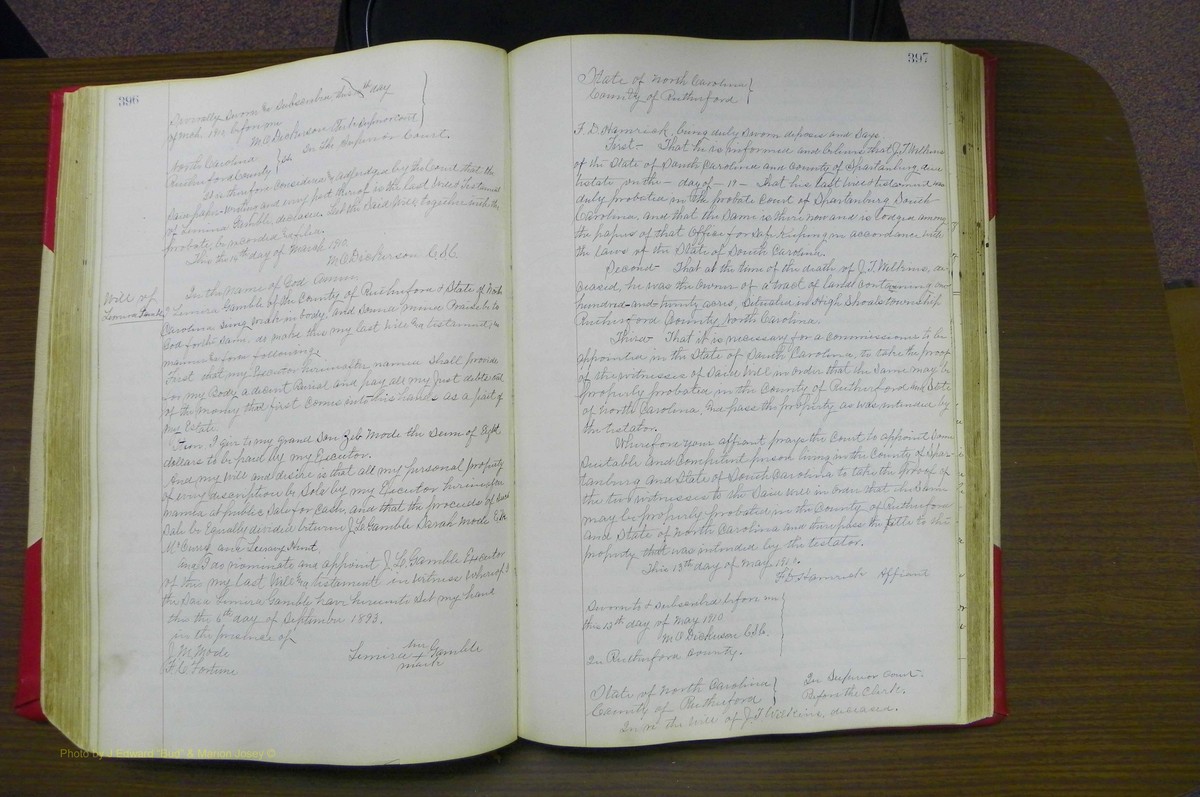 396
Severally Sworn & Subscribed, this 14th day
of Mch 1910 before me
M.O. Dickerson Clerk Superior Court
North Carolina } In the Superior Court.
Rutherford County } SS
It is therefore considered & adjudged by the Court that the
said paper-writing and every part thereof is the last Will & Testament
of Lemira Gamble, deceased, Let the said Will together with the
probate, be recorded & filed.
This the 14th day of March 1910.
M.O. Dickerson C.S.C.
Will of
Lemira Gamble
In the name of God Amen
I Lemira Gamble of the County of Rutherford & State of North
Carolina being weak in body, and sound mind Praise be to
God for the same, do make this my last Will & testament, in
manner & form following.
First that my Executor hereinafter named shall provide
for my Body a decent burial and pay all my just debts out
of the money that first comes into his hands as a part of
my Estate
Item. I give to my grand Son Zeb Mode the Sum of Eight
dollars to be paid by my Executor.
And my will and desire is that all my personal property
of every discription be Sold by my Executor hereinafter
named at public Sale for Cash, and that the proceeds of said
Sale be Equally devided between J.L. Gamble Sarah Mode
McCurry and Hunt
And I do nominate and appoint J.L. Gamble Executor
of this my last Will & testament in witness whereof I
the said Lemira Gamble have hereunto Set my hand
this the 6th day of September 1893.
in the presence of
J.M. Mode
F.C. Fortune
Lemira her + mark Gamble
397
State of North Carolina }
County of Rutherford }
F. D. Hamrick, being duly Sworn deposes and Says.
First - That he is informed and believes that J.T. Wilkins
of the State of South Carolina and County of Spartanburg, died
testate, on the - day of - 19 - That his last will & testament was
duly probated in the probate Court of Spartanburg South
Carolina, and that the same is there now and is lodged among
the papers of that Office for Safe Keeping in accordance with
the laws of the State of South Carolina.
Second - That at the time of the death of J.T. Wilkins, de-
ceased, he was the owner of a tract of land containing one
hundred-and-twenty acres, Situated in High Shoals township
Rutherford County North Carolina.
Third - That it is necessary for a commissioner to be
appointed in the State of South Carolina, to take the proof
of the witnesses of said Will in order that the same may be
properly probated in the County of Rutherford and State
of North Carolina, and pass the property as was intended by
the testator.
Wherefore your affiant prays the Court to appoint some
Suitable and Competent person living in the County of Spar-
tanburg and State of South Carolina to take the proof of
the two witnesses to the said Will in order that the same
may be properly probated in the County of Rutherford
and State of North Carolina and there pass the title to the
property that was intended by the testator.
This 13th day of May 1910.
F.D. Hamrick Affiant
Sworn to & subscribed before me }
this 13th day of May 1910
M.O. Dickerson C.S.C.
In Rutherford County.
State of North Carolina } In Superior Court.
County of Rutherford } Before the Clerk.
In re the Will of J.T. Wilkins, deceased.
Photo by J Edward "Bud" & Marion Josey ©